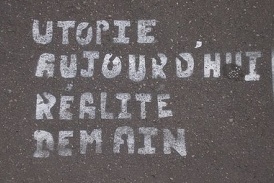 UTOPIE
AUJOURD'HUI
REALITE
DEMAIN